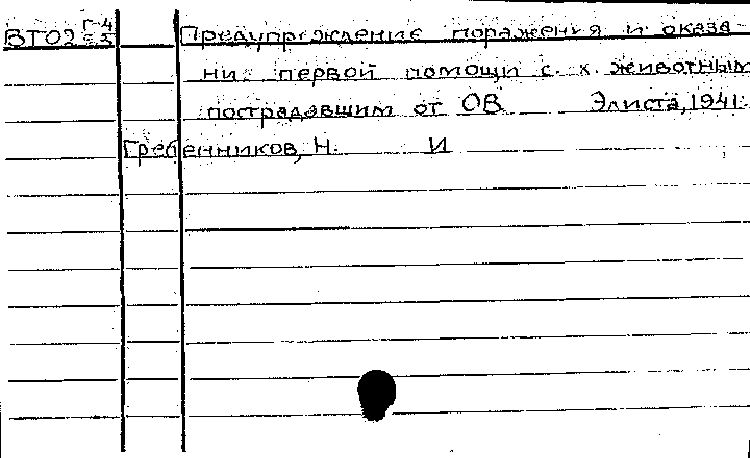 ВТ02 Г-4 Предупреждение поражения и оказа-
ни. первой помощи с. х. животным
пострадавшим от ОВ Элиста, 1941.
Гребенников, Н. И